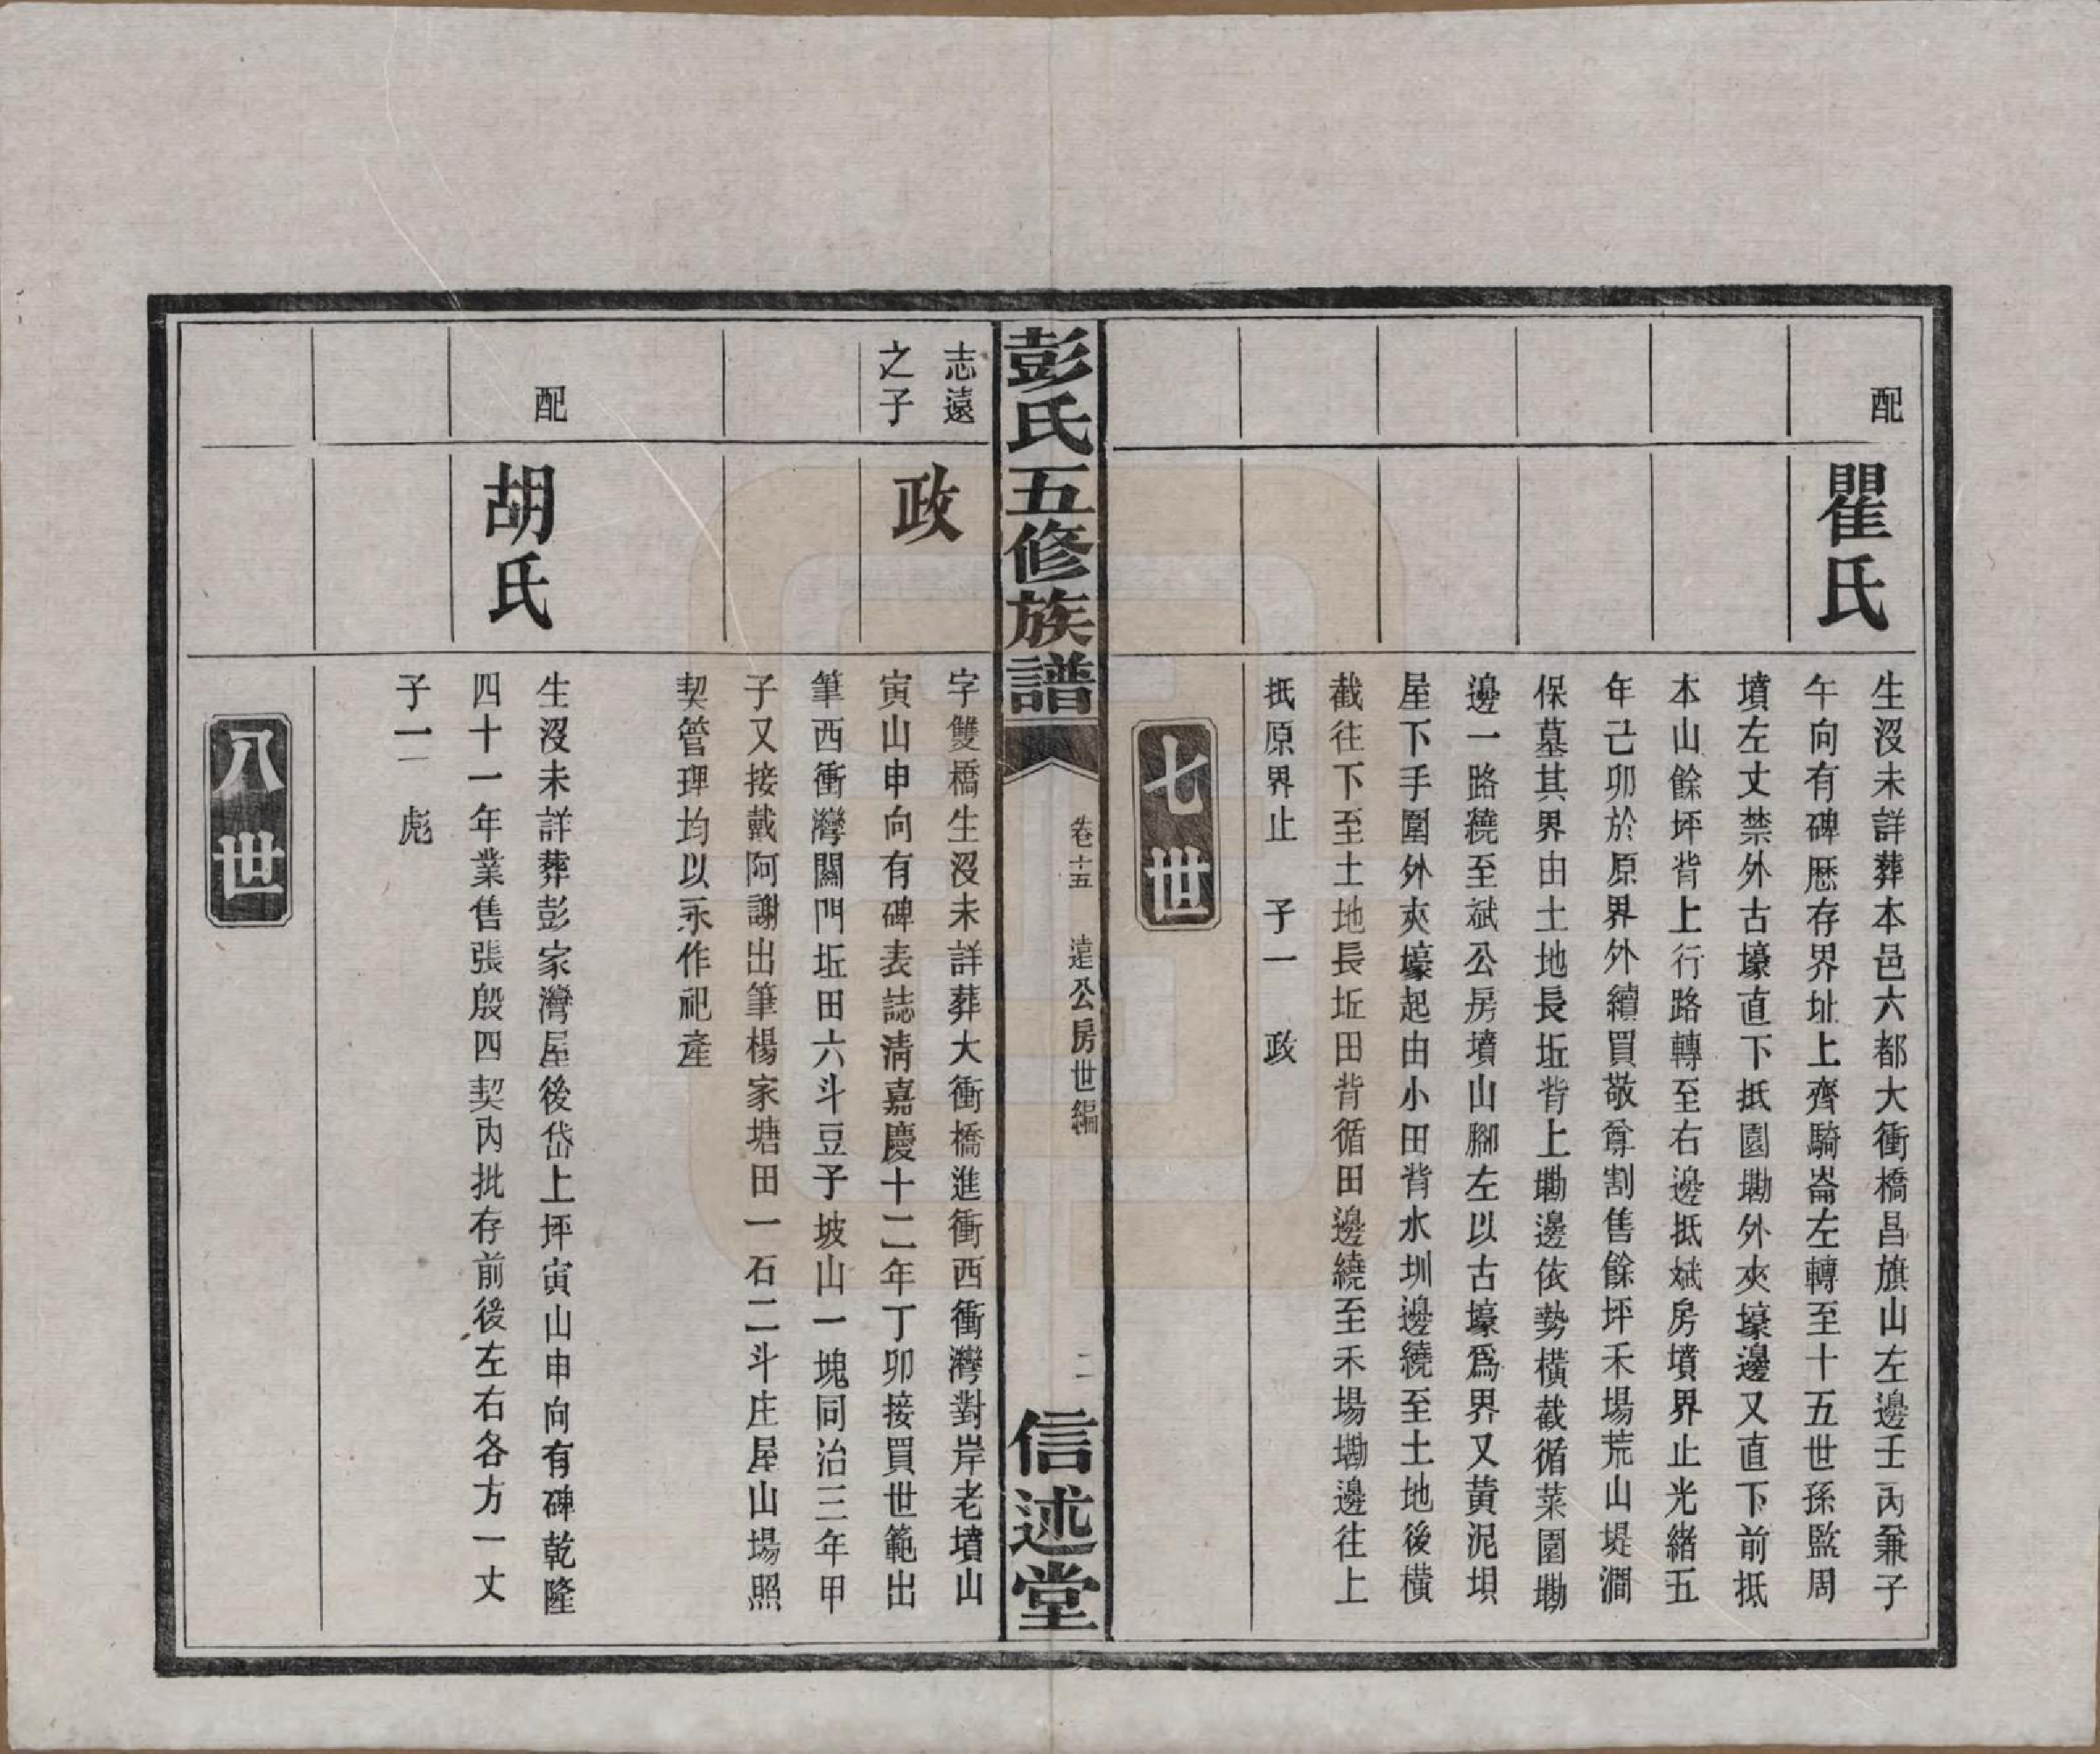 配
瞿氏
生沒未詳葬本邑六都大衝橋昌旗山左邊壬丙兼子
午向有碑歷存界址上齊騎崙左轉至十五世孫監周
墳左丈禁外古壕直下抵園墈外夾壕邊又直下前抵
本山餘坪背上行路轉至右邊抵斌房墳界止光緒五
年己卯於原界外續買敬尊割售餘坪禾場荒山堤澗
保墓其界由土地長坵背上墈邊依勢橫截循菜園墈
邊一路繞至斌公房墳山腳左以古壕爲界又黃泥垻
屋下手圍外夾壕起由小田背水圳邊繞至土地後橫
截往下至土地長坵田背循田邊繞至禾場墈邊往上
抵原界止　子一　政
七世
彭氏五修族譜
卷十五　遠公房世編
二
信述堂
志遠
之子
政
字雙橋生沒未詳葬大衝橋進衝西衝灣對岸老墳山
寅山申向有碑表誌清嘉慶十二年丁卯接買世範出
筆西衝灣關門坵田六斗豆子坡山一塊同治三年甲
子又接戴阿謝出筆楊家塘田一石二斗庄屋山場照
契管理均以永作祀產
配
胡氏
生沒未詳葬彭家灣屋後岱上坪寅山申向有碑乾隆
四十一年業售張殷四契內批存前後左右各方一丈
子一　彪
八世